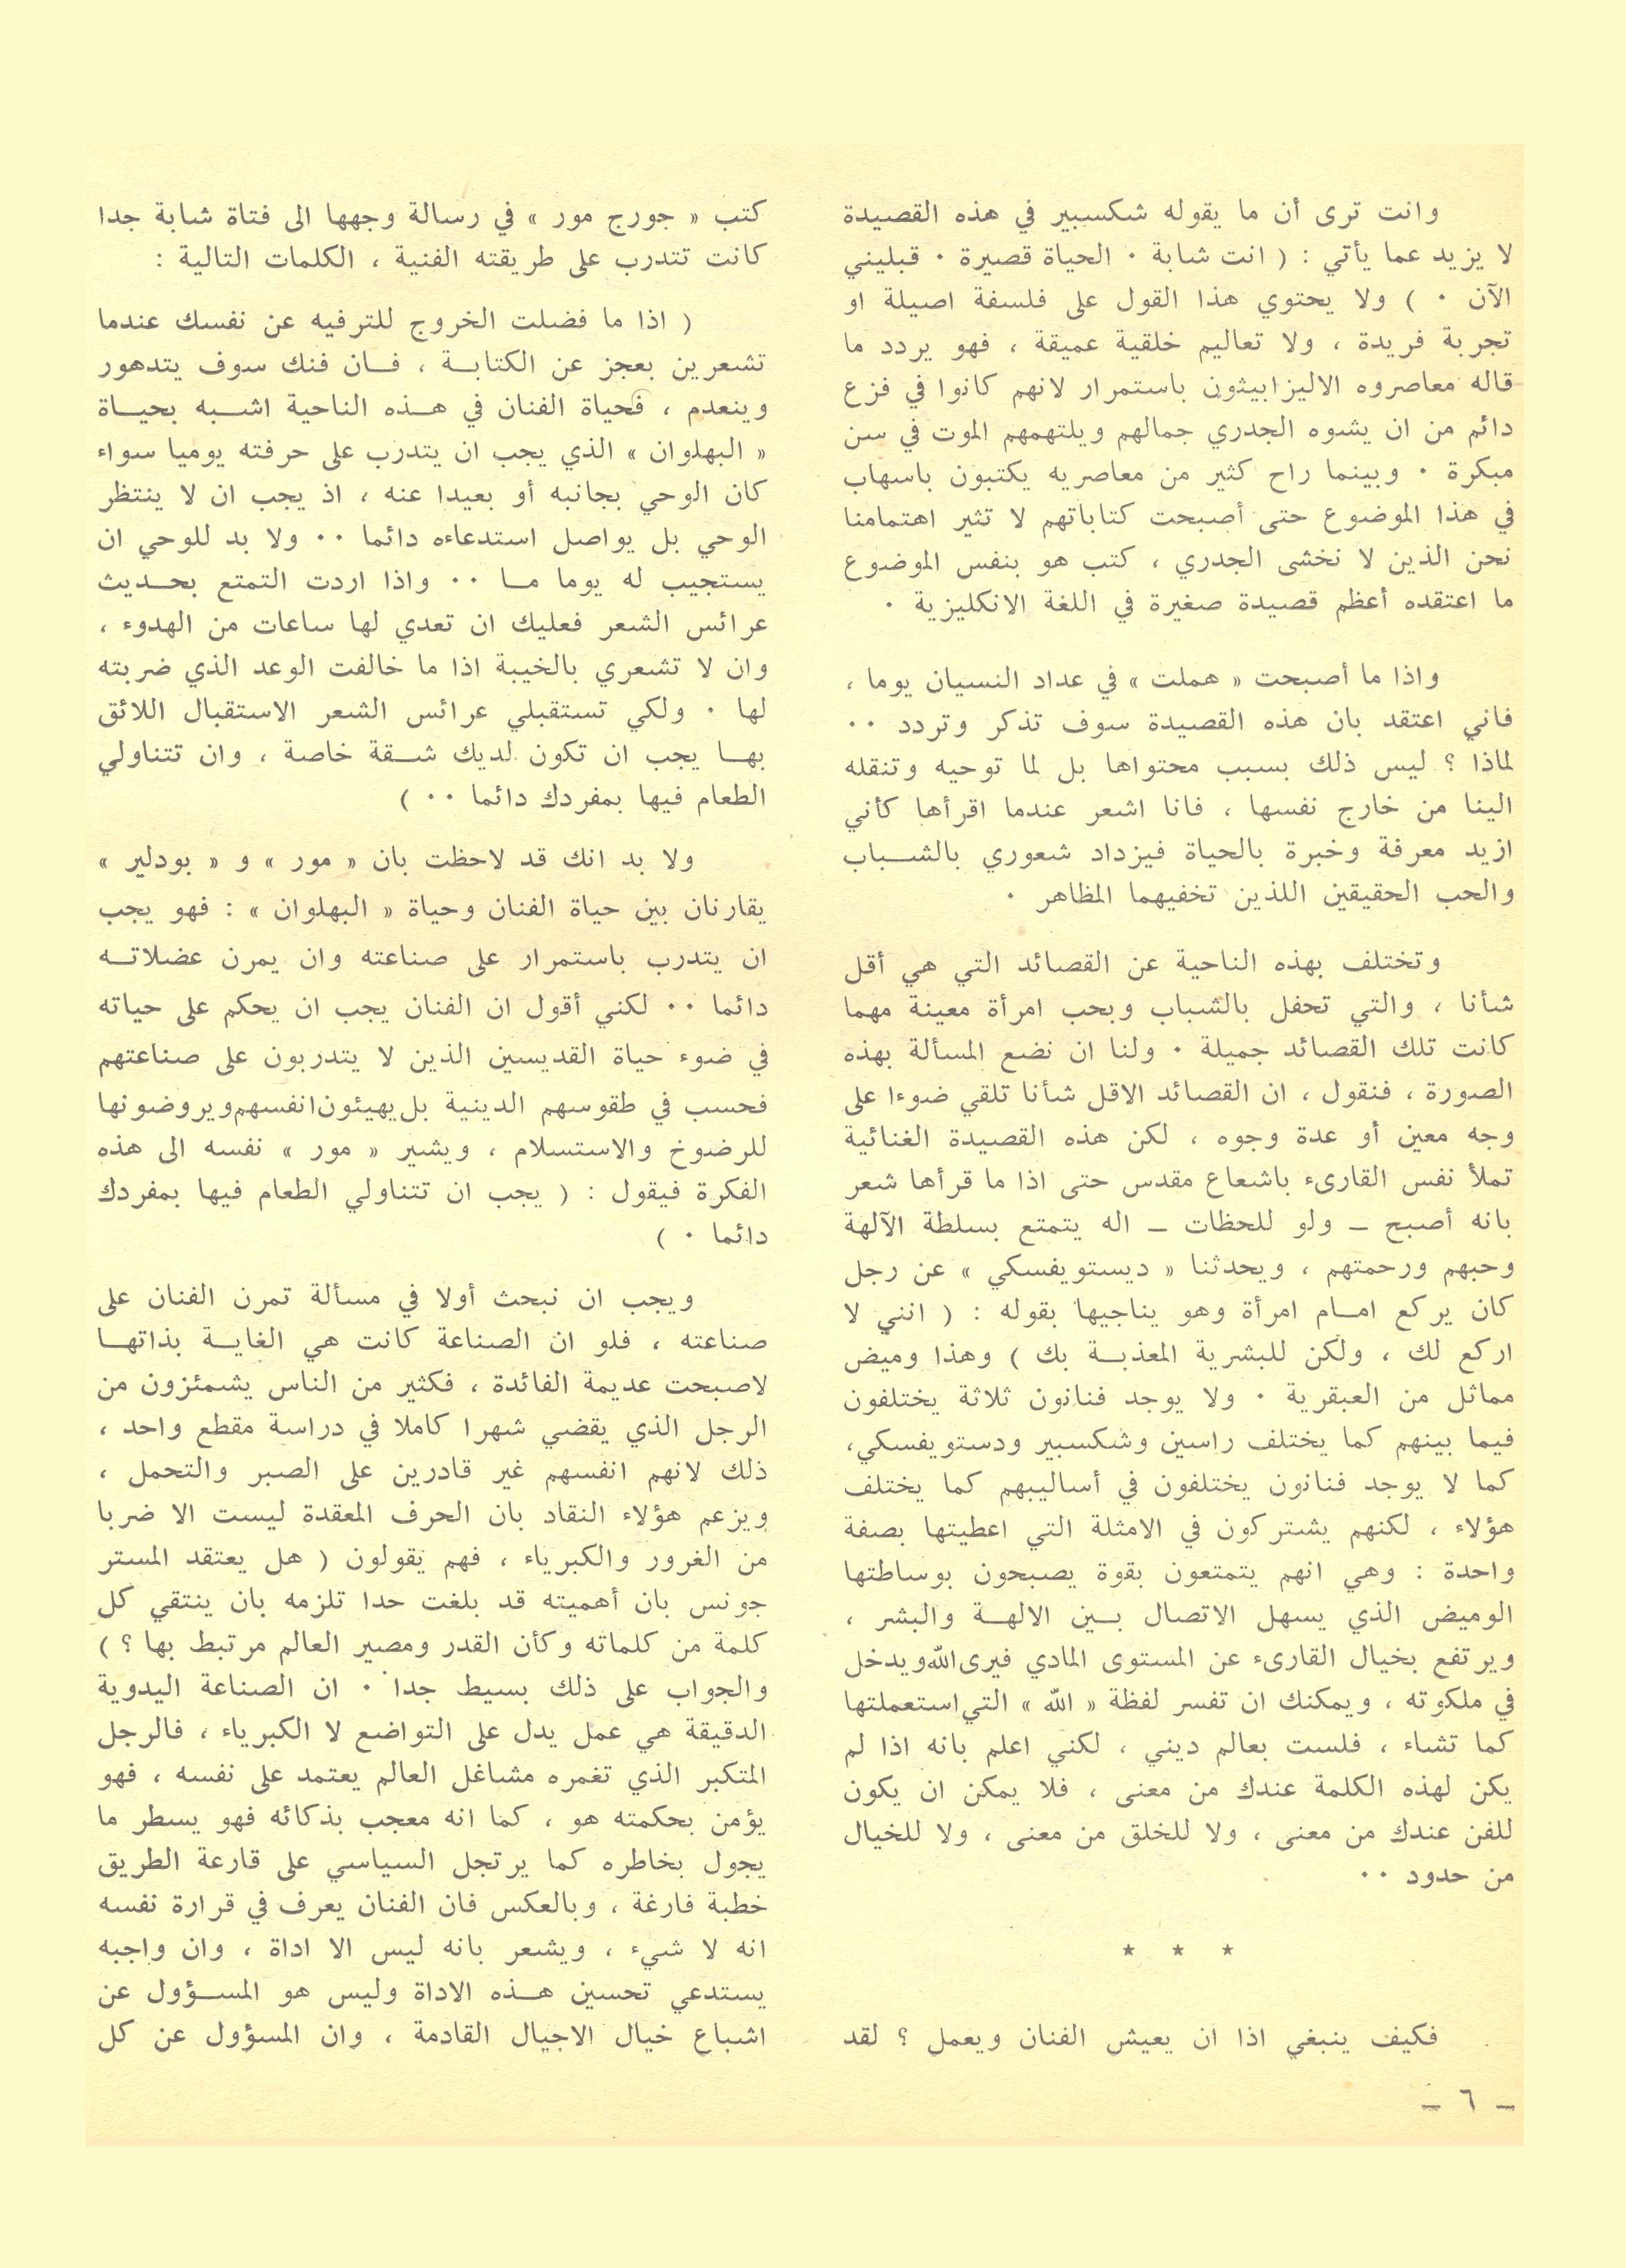 وانت ترى أن ما يقوله شكسبير في هذه القصيدة
لا يزيد عما يأتي : ( انت شابة ٠ الحياة قصيرة ٠ قبليني
الآن ٠ ) ولا يحتوي هذا القول على فلسفة اصيلة او
تجربة فريدة ، ولا تعاليم خلقية عميقة ، فهو يردد ما
قاله معاصروه الاليزابيثون باستمرار لانهم كانوا في فزع
دائم من ان يشوه الجدري جمالهم ويلتهمهم الموت في سن
مبكرة ٠ وبينما راح كثير من معاصريه يكتبون باسهاب
في هذا الموضوع حتى أصبحت كتاباتهم لا تثير اهتمامنا
نحن الذين لا نخشى الجدري ، كتب هو بنفس الموضوع
ما اعتقده أعظم قصيدة صغيرة في اللغة الانكليزية ٠
واذا ما أصبحت « هملت » في عداد النسيان يوما ،
فاني اعتقد بان هذه القصيدة سوف تذكر وتردد ٠٠
لماذا ؟ ليس ذلك بسبب محتواها بل لما توحيه وتنقله
الينا من خارج نفسها ، فانا اشعر عندما اقرأها كأني
ازيد معرفة وخبرة بالحياة فيزداد شعوري بالشباب
والحب الحقيقين اللذين تخفيهما المظاهر ٠
وتختلف بهذه الناحية عن القصائد التي هي أقل
شأنا ، والتي تحفل بالشباب وبحب امرأة معينة مهما
كانت تلك القصائد جميلة ٠ ولنا ان نضع المسألة بهذه
الصورة ، فنقول ، ان القصائد الاقل شأنا تلقي ضوءا على
وجه معين أو عدة وجوه ، لكن هذه القصيدة الغنائية
تملأ نفس القارىء باشعاع مقدس حتى اذا ما قرأها شعر
بانه أصبح ــ ولو للحظات ــ اله يتمتع بسلطة الآلهة
وحبهم ورحمتهم ، ويحدثنا « ديستويفسكي » عن رجل
كان يركع امام امرأة وهو يناجيها بقوله : ( انني لا
اركع لك ، ولكن للبشرية المعذبة بك ) وهذا وميض
مماثل من العبقرية ٠ ولا يوجد فنانون ثلاثة يختلفون
فيما بينهم كما يختلف راسين وشكسبير ودستويفسكي،
كما لا يوجد فنانون يختلفون في أساليبهم كما يختلف
هؤلاء ، لكنهم يشتركون في الامثلة التي اعطيتها بصفة
واحدة : وهي انهم يتمتعون بقوة يصبحون بوساطتها
الوميض الذي يسهل الاتصال بين الالهة والبشر ،
ويرتفع بخيال القارىء عن المستوى المادي فيرى الله ويدخل
في ملكوته ، ويمكنك ان تفسر لفظة « الله » التي استعملتها
كما تشاء ، فلست بعالم ديني ، لكني اعلم بانه اذا لم
يكن لهذه الكلمة عندك من معنى ، فلا يمكن ان يكون
للفن عندك من معنى ، ولا للخلق من معنى ، ولا للخيال
من حدود ٠٠
★ ★ ★
فكيف ينبغي اذا ان يعيش الفنان ويعمل ؟ لقد
كتب « جورج مور » في رسالة وجهها الى فتاة شابة جدا
كانت تتدرب على طريقته الفنية ، الكلمات التالية :
( اذا ما فضلت الخروج للترفيه عن نفسك عندما
تشعرين بعجز عن الكتابة ، فان فنك سوف يتدهور
وينعدم ، فحياة الفنان في هذه الناحية اشبه بحياة
« البهلوان » الذي يجب ان يتدرب على حرفته يوميا سواء
كان الوحي بجانبه أو بعيدا عنه ، اذ يجب ان لا ينتظر
الوحي بل يواصل استدعاءه دائما ٠٠ ولا بد للوحي ان
يستجيب له يوما ما ٠٠ واذا اردت التمتع بحديث
عرائس الشعر فعليك ان تعدي لها ساعات من الهدوء ،
وان لا تشعري بالخيبة اذا ما خالفت الوعد الذي ضربته
لها ٠ ولكي تستقبلي عرائس الشعر الاستقبال اللائق
بها يجب ان تكون لديك شقة خاصة ، وان تتناولي
الطعام فيها بمفردك دائما ٠٠ )
ولا بد انك قد لاحظت بان « مور » و « بودلير »
يقارنان بين حياة الفنان وحياة « البهلوان » : فهو يجب
ان يتدرب باستمرار على صناعته وان يمرن عضلاته
دائما ٠٠ لكني أقول ان الفنان يجب ان يحكم على حياته
في ضوء حياة القديسين الذين لا يتدربون على صناعتهم
فحسب في طقوسهم الدينية بل يهيئون انفسهم ويروضونها
للرضوخ والاستسلام ، ويشير « مور » نفسه الى هذه
الفكرة فيقول : ( يجب ان تتناولي الطعام فيها بمفردك
دائما ٠ )
ويجب ان نبحث أولا في مسألة تمرن الفنان على
صناعته ، فلو ان الصناعة كانت هي الغاية بذاتها
لاصبحت عديمة الفائدة ، فكثير من الناس يشمئزون من
الرجل الذي يقضي شهرا كاملا في دراسة مقطع واحد ،
ذلك لانهم انفسهم غير قادرين على الصبر والتحمل ،
ويزعم هؤلاء النقاد بان الحرف المعقدة ليست الا ضربا
من الغرور والكبرياء ، فهم يقولون ( هل يعتقد المستر
جونس بان أهميته قد بلغت حدا تلزمه بان ينتقي كل
كلمة من كلماته وكأن القدر ومصير العالم مرتبط بها ؟ )
والجواب على ذلك بسيط جدا ٠ ان الصناعة اليدوية
الدقيقة هي عمل يدل على التواضع لا الكبرياء ، فالرجل
المتكبر الذي تغمره مشاغل العالم يعتمد على نفسه ، فهو
يؤمن بحكمته هو ، كما انه معجب بذكائه فهو يسطر ما
يجول بخاطره كما يرتجل السياسي على قارعة الطريق
خطبة فارغة ، وبالعكس فان الفنان يعرف في قرارة نفسه
انه لا شيء ، ويشعر بانه ليس الا اداة ، وان واجبه
يستدعي تحسين هذه الاداة وليس هو المسؤول عن
اشباع خيال الاجيال القادمة ، وان المسؤول عن كل
ــ ٦ ــ